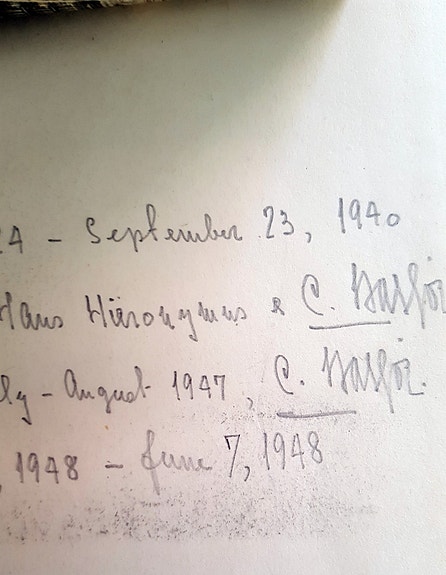 24 – September 23, 1940
Hans Hieronymus & C.
ly – August 1947, C.
, 1948 – June 7, 1948